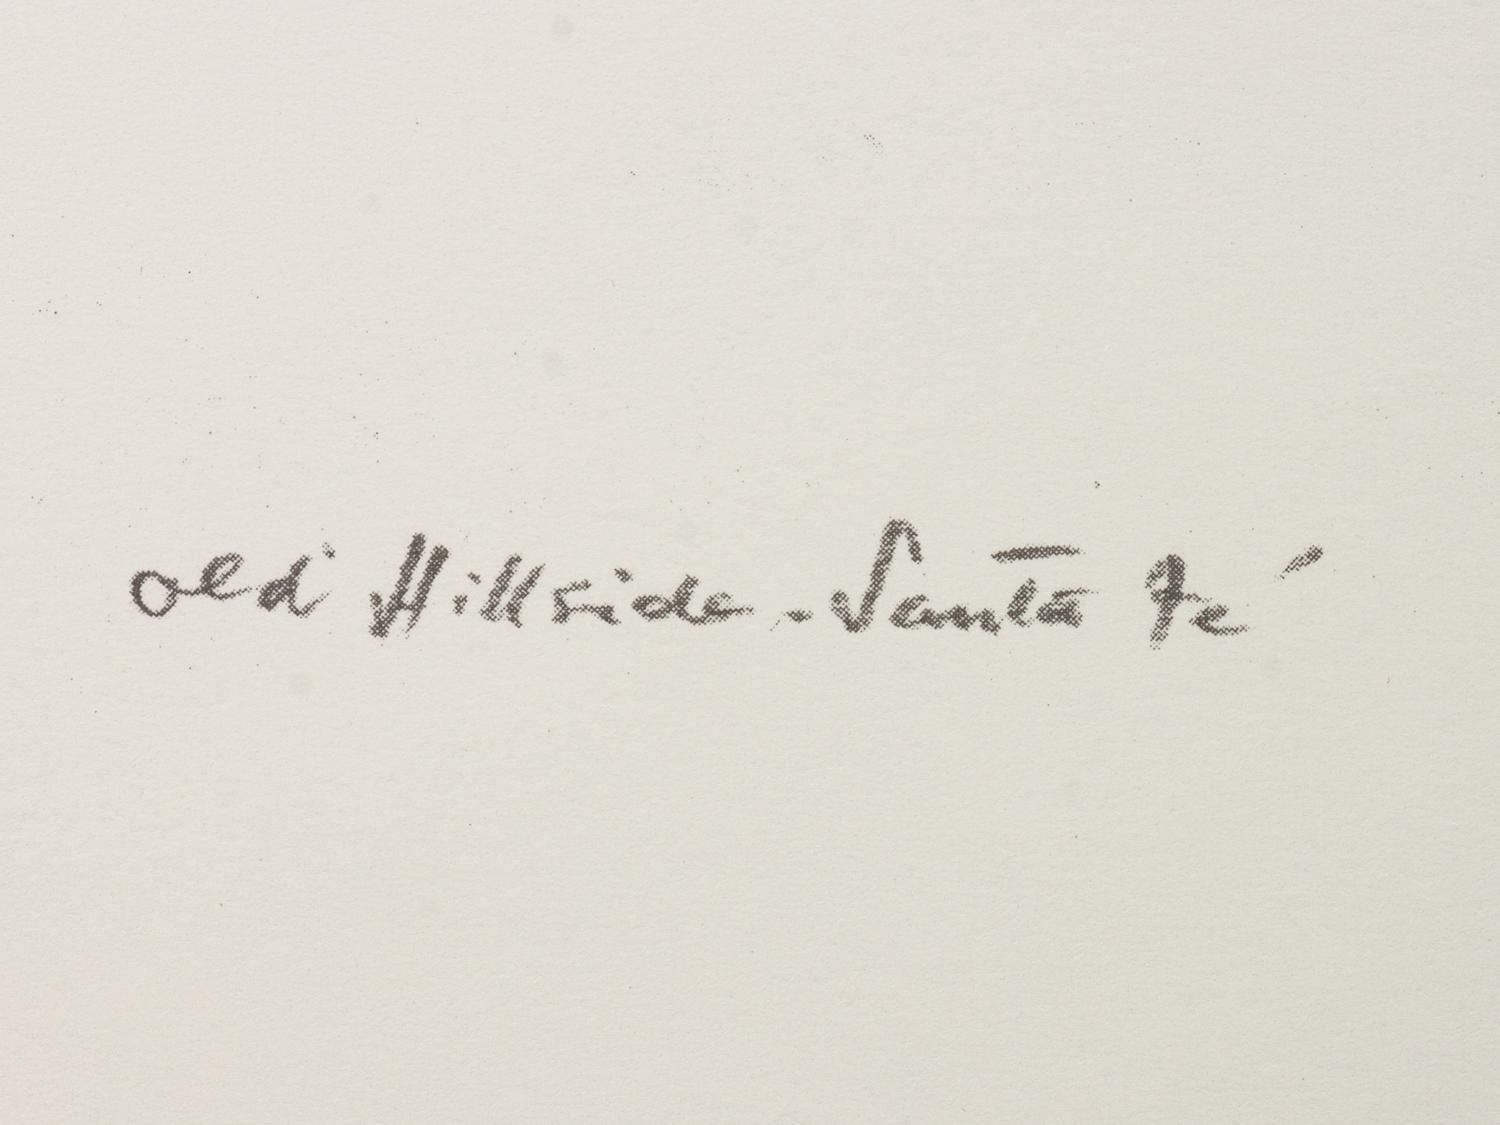 old Hillside - Santa Fé